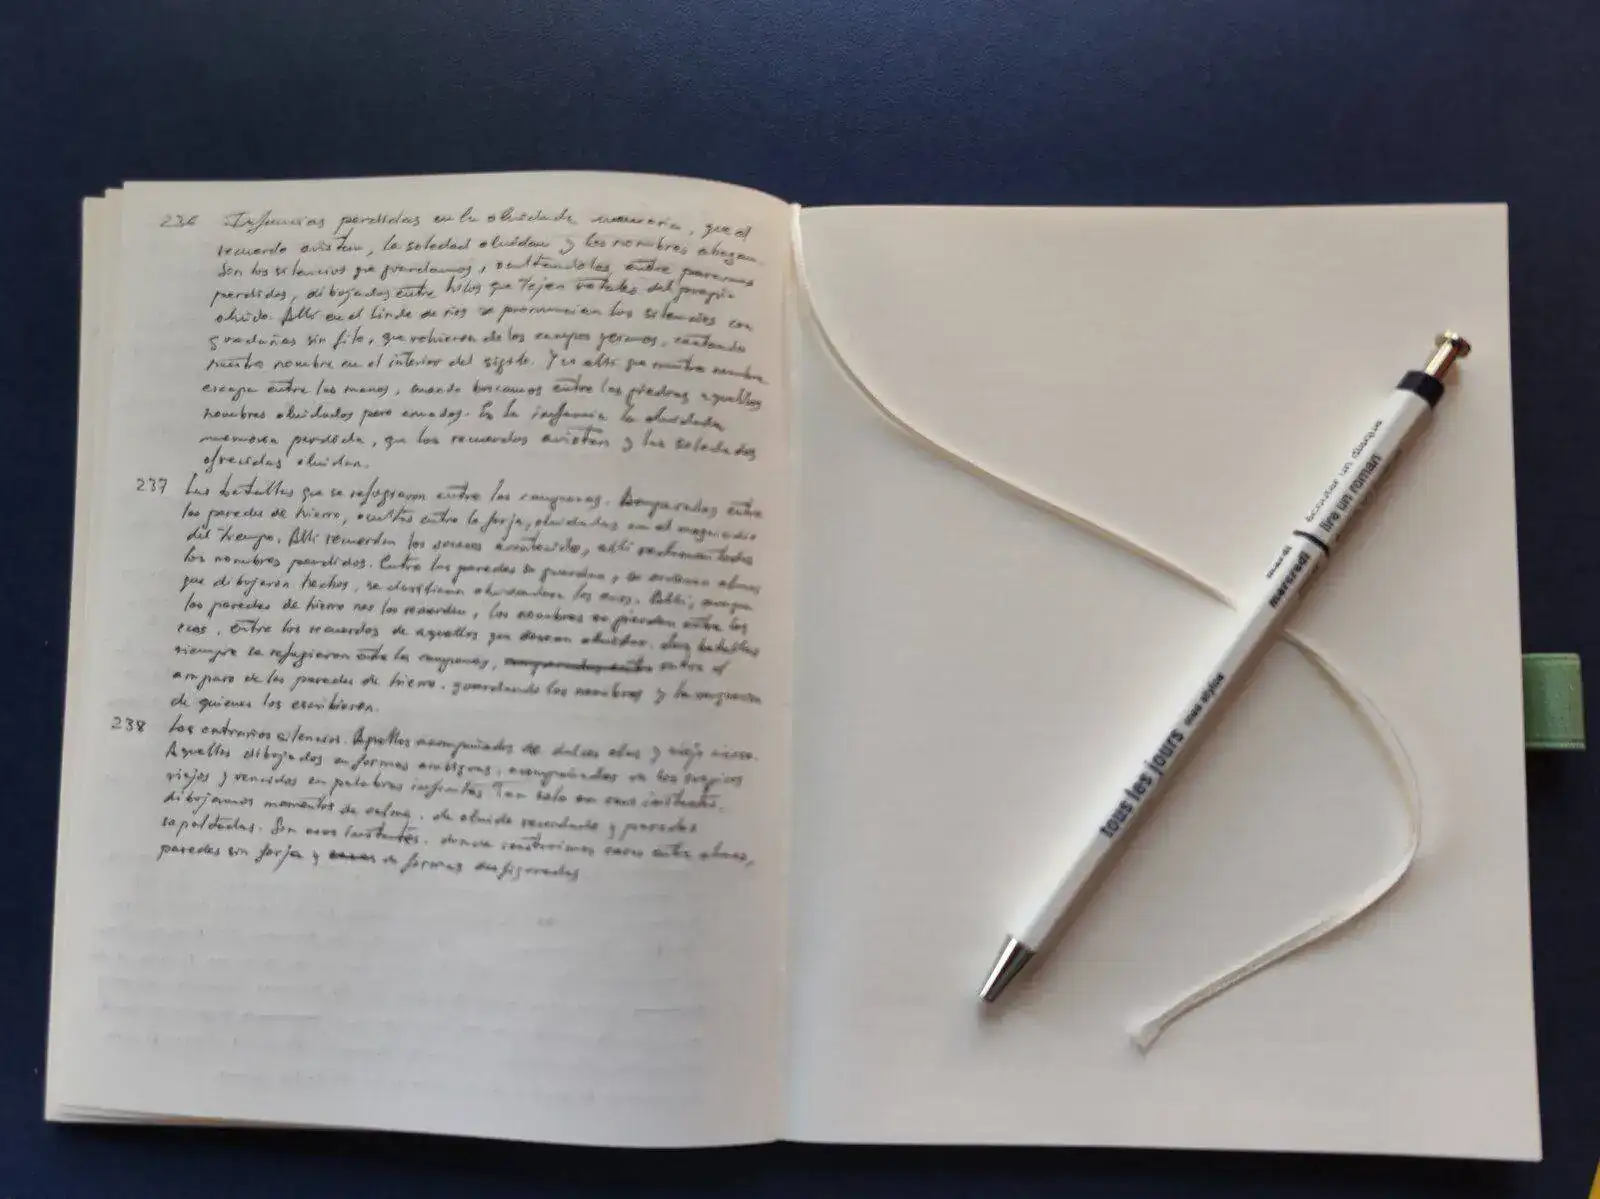 236 Infancias perdidas en la olvidada memoria, que el
recuerdo avistan, la soledad olvidan y los nombres ahogan.
Son los silencios que guardamos, ocultándolos, entre
perdidos, dibujados entre hilos que tejen del propio
olvido. Allí en el linde de se pronuncian los silencios con
guadañas sin filo, que volvieron de los campos yermos,
nuestro nombre en el interior del sigilo. Y es allí que nuestro nombre
escapa entre las manos, cuando buscamos entre las piedras aquellos
nombres olvidados pero amados. Es la infancia la olvidada
memoria perdida, que los recuerdos avistan y las soledades
ofrecidas olvidan.
237 Las batallas que se refugiaron entre las campanas. entre
las paredes de hierro, ocultas entre la forja, olvidadas en el
del tiempo. Allí recuerdan los acontecido, allí todos
los nombres perdidos. Entre las paredes se guardan, se almas
que dibujaron hechos, se olvidando los ecos. Allí, aunque
las paredes de hierro nos los recuerdan, los nombres se pierden entre los
ecos, entre los recuerdos de aquellos que desean olvidar. Las batallas
siempre se refugiaron entre las campanas, entre el
amparo de las paredes de hierro, guardando los nombres y la
de quienes los escribieron.
238 Los silencios. Aquellos acompañados de dulces olas y viejo
Aquellos dibujados en formas ambiguas, acompañados en los
viejos y vencidos en palabras infinitas. Tan solo en esos instantes,
dibujamos momentos de calma, de olvido recordado y paredes
sepultadas. Son esos instantes, donde construimos entre almas,
paredes sin forja y de formas
écouter un disque
lire un roman
mardi
mercredi
tous les jours mes stylos